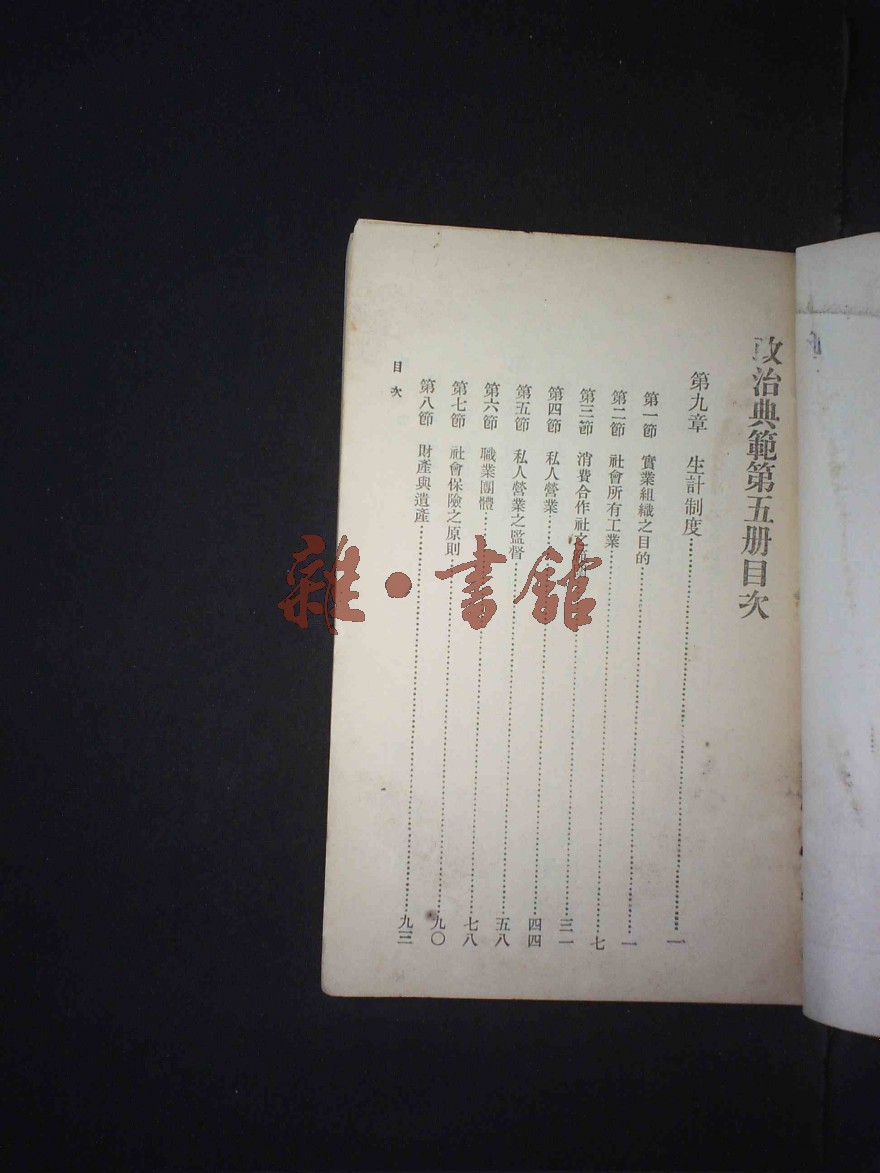 政治典範第五册目次
第九章 生計制度 一
第一節 實業組織之目的 一
第二節 社會所有工業 七
第三節 消費合作社之 三一
第四節 私人營業 四四
第五節 私人營業之監督 五八
第六節 職業團體 七八
第七節 社會保險之原則 九〇
第八節 財產與遺產 九三
目次
雜·書館